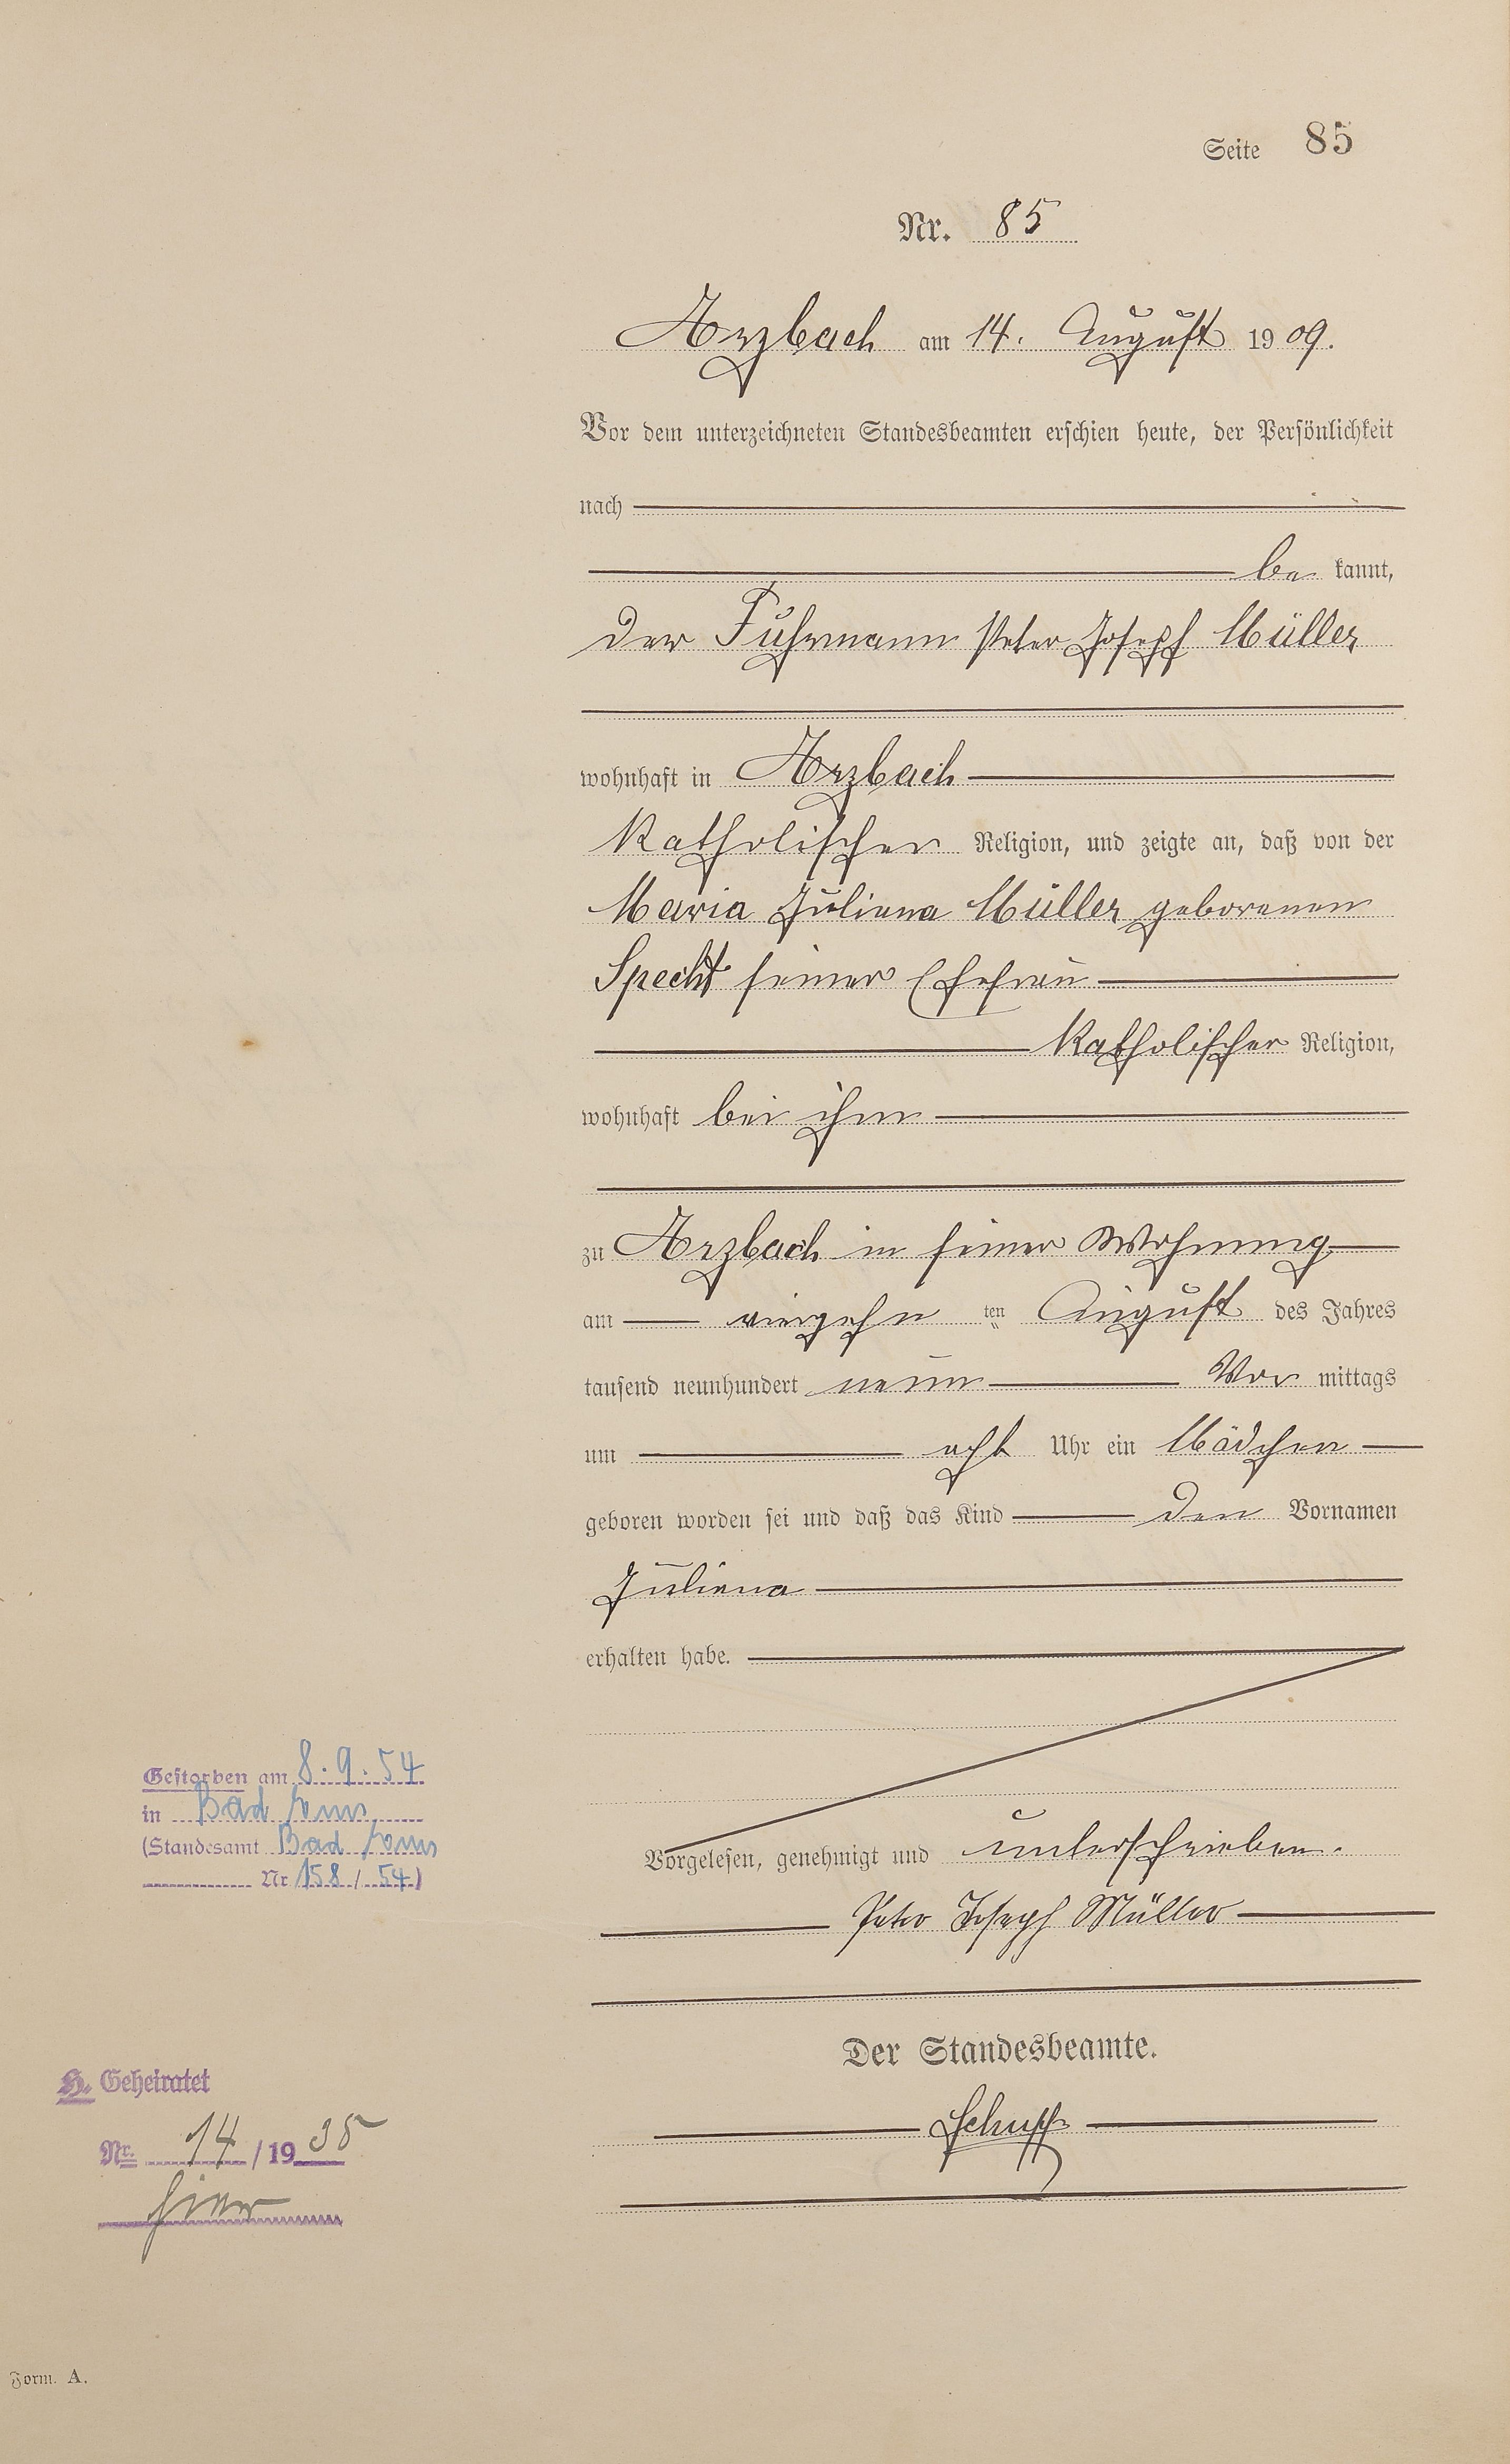 Seite 85
Nr. 85
Arzbach am 14. August 1909.
Vor dem unterzeichneten Standesbeamten erschien heute, der Persönlichkeit
nach
be kannt,
der Fuhrmann Peter Joseph Müller
wohnhaft in Arzbach
katholischer Religion, und zeigte an, daß von der
Maria Juliana Müller geborenen
Specht seiner Ehefrau
katholischer Religion,
wohnhaft bei ihm
zu Arzbach in seiner Wohnung
am vierzehn ten August des Jahres
tausend neunhundert neun Vor mittags
um acht Uhr ein Mädchen
geboren worden sei und daß das Kind den Vornamen
Juliana
erhalten habe.
Vorgelesen, genehmigt und unterschrieben.
Peter Joseph Müller
Der Standesbeamte.
Schupp
Gestorben am 8.9.54
in Bad Ems
(Standesamt Bad Ems
Nr 158/54)
H. Geheiratet
Nr. 14/1935
hier
Form. A.